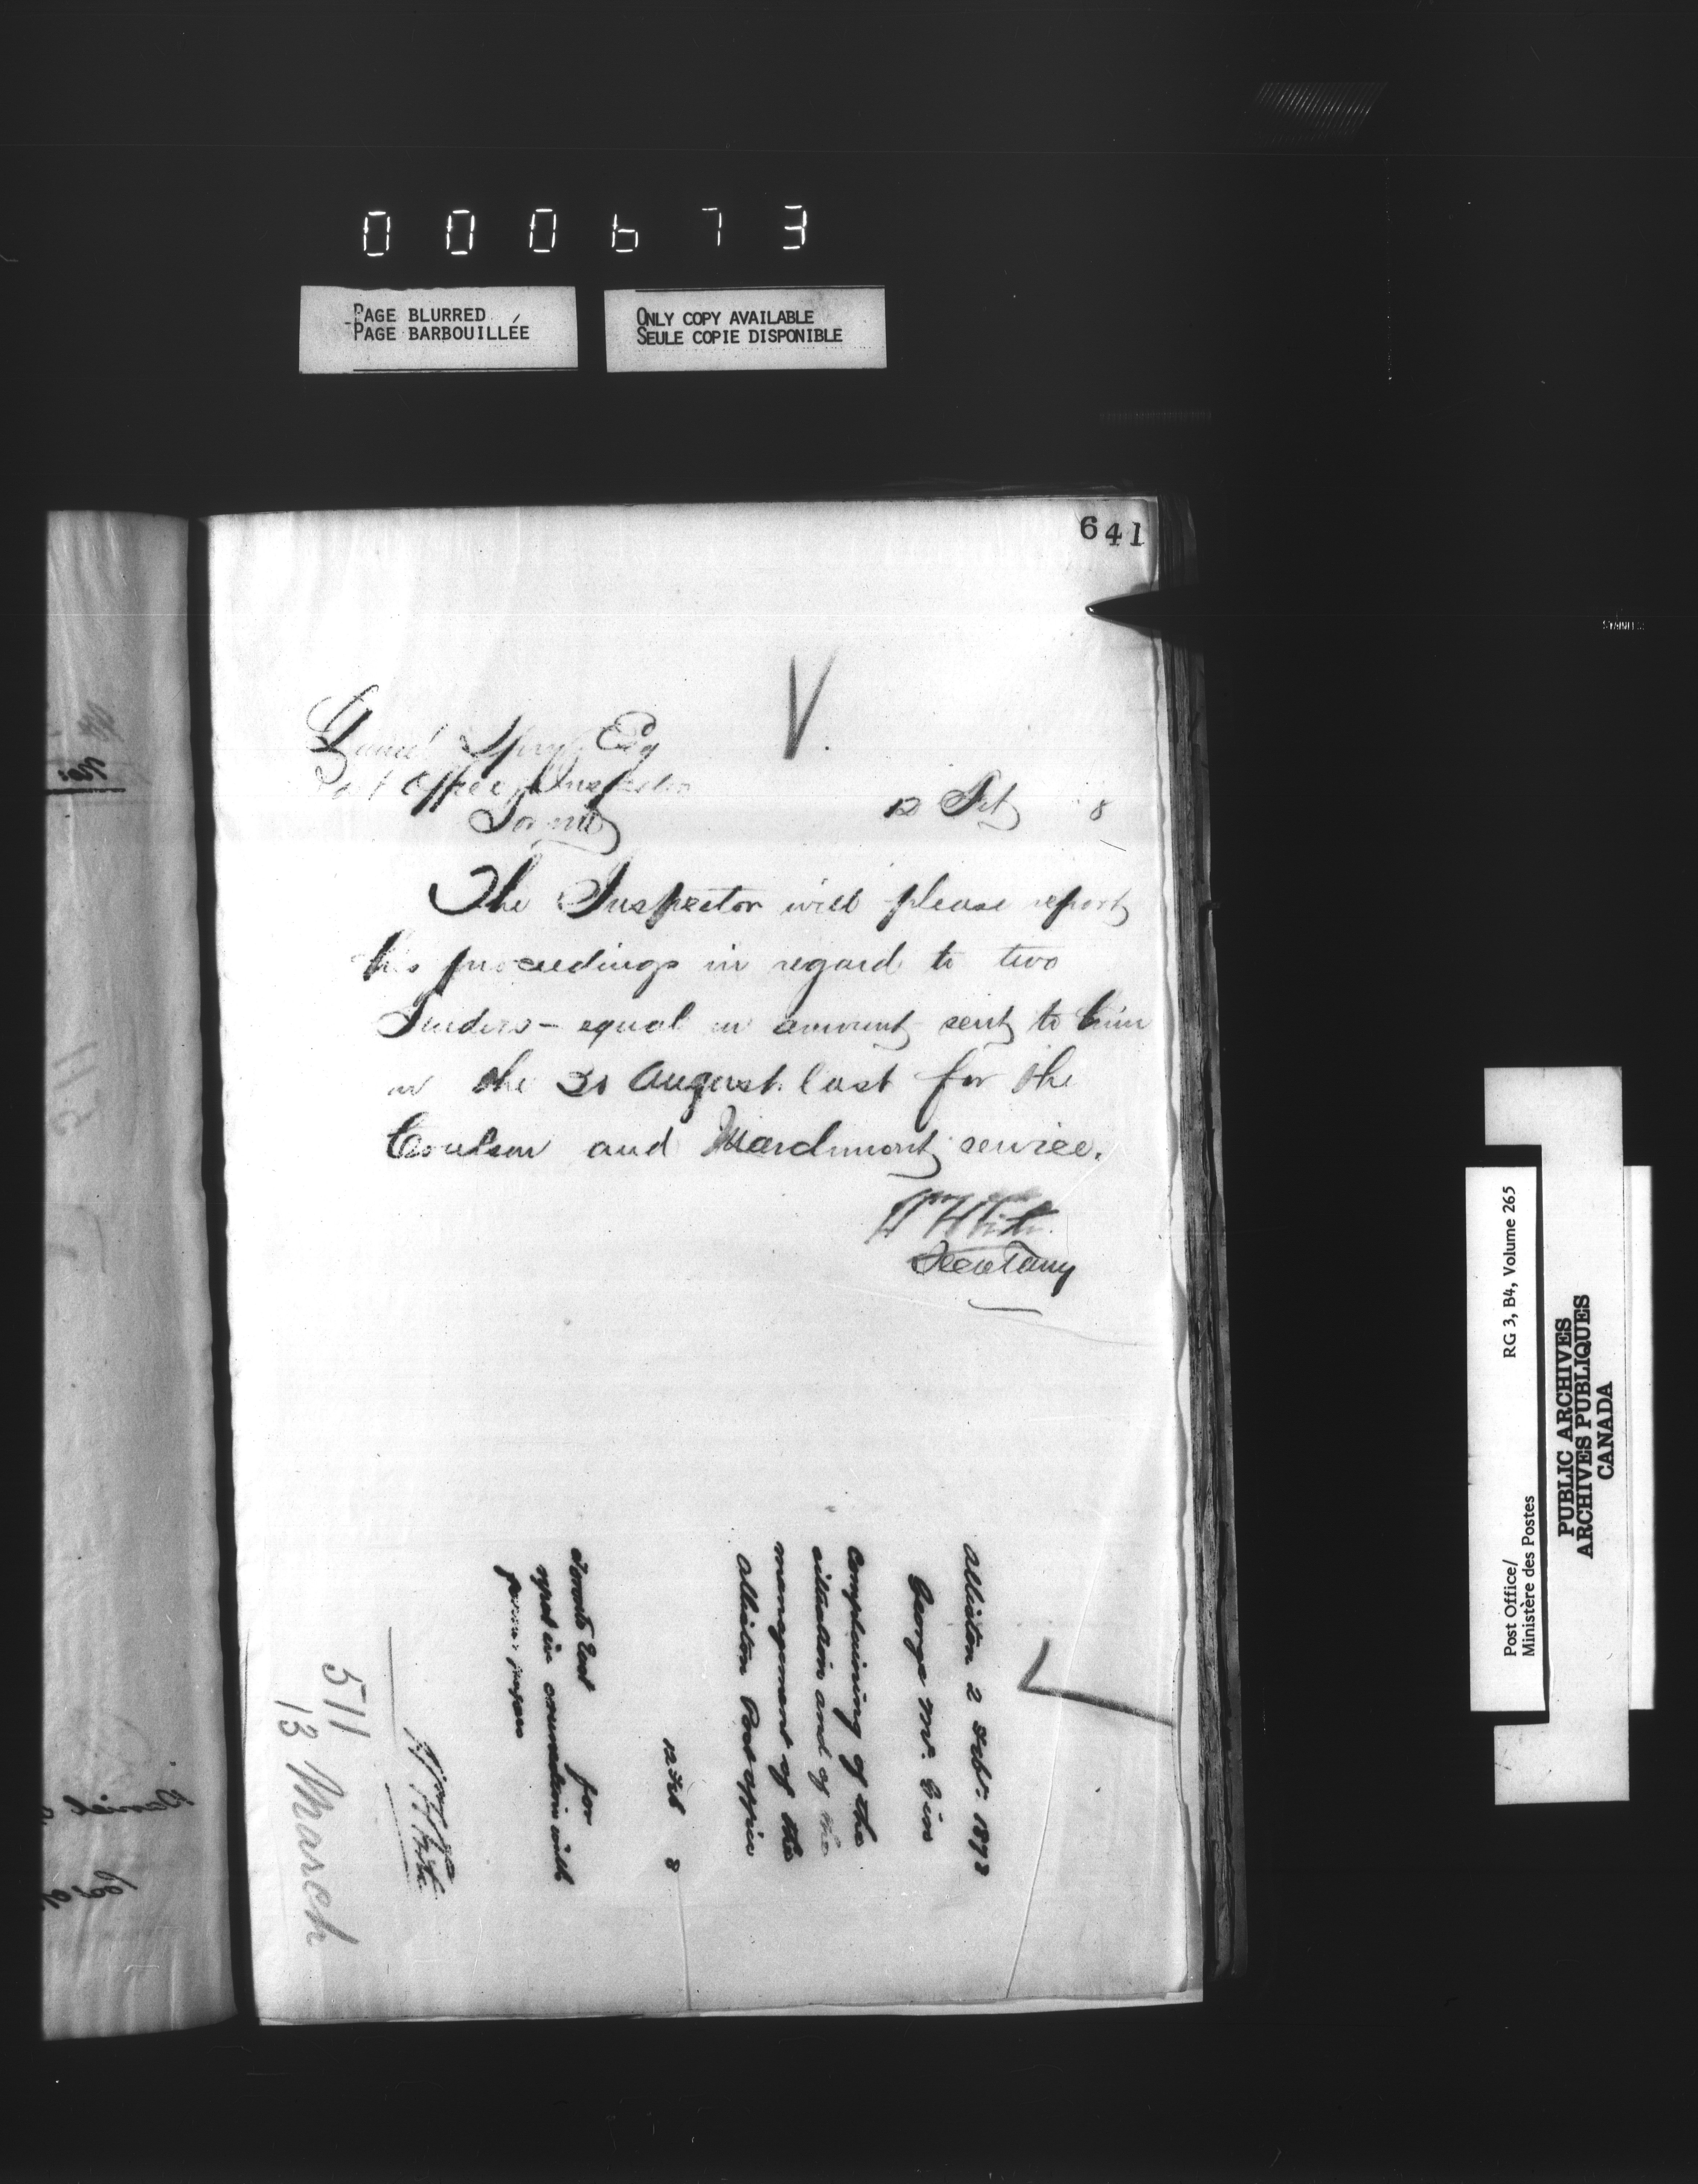 000673
PAGE BLURRED
PAGE BARBOUILLÉE
ONLY COPY AVAILABLE
SEULE COPIE DISPONIBLE
641
V
Daniel Spry Esq
Post Office Inspector
Toronto
12 Feb 8
The Inspector will please report
his proceedings in regard to two
Tenders - equal in amount sent to him
on the 30 August last for the
Coulson and Marchmont service.
W H
Secretary
Alliston 2 Feby. 1878
George Mc.
Complaining of the
situation and of the
management of the
Alliston Post office
12 Feb 8
for
report in connection with
former papers
511
13 March
Daniel
Post Office/
Ministère des Postes
RG 3, B4, Volume 265
PUBLIC ARCHIVES
ARCHIVES PUBLIQUES
CANADA